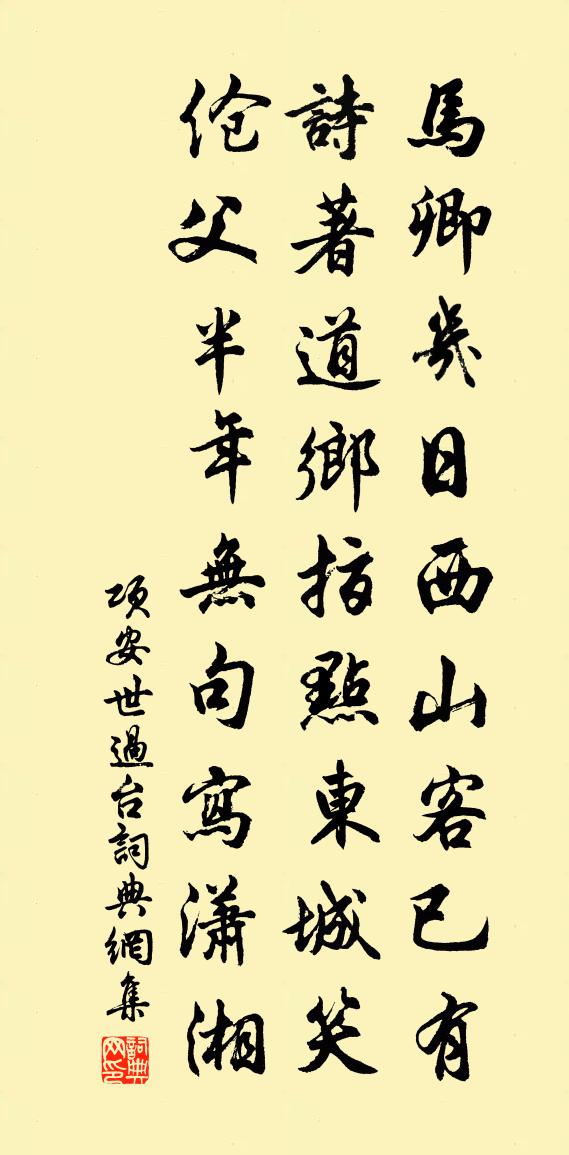 馬卿幾日西山客已有
詩著道鄉指點東城笑
傖父半年無句寫瀟湘
項安世過台詞典網集
詞典网印